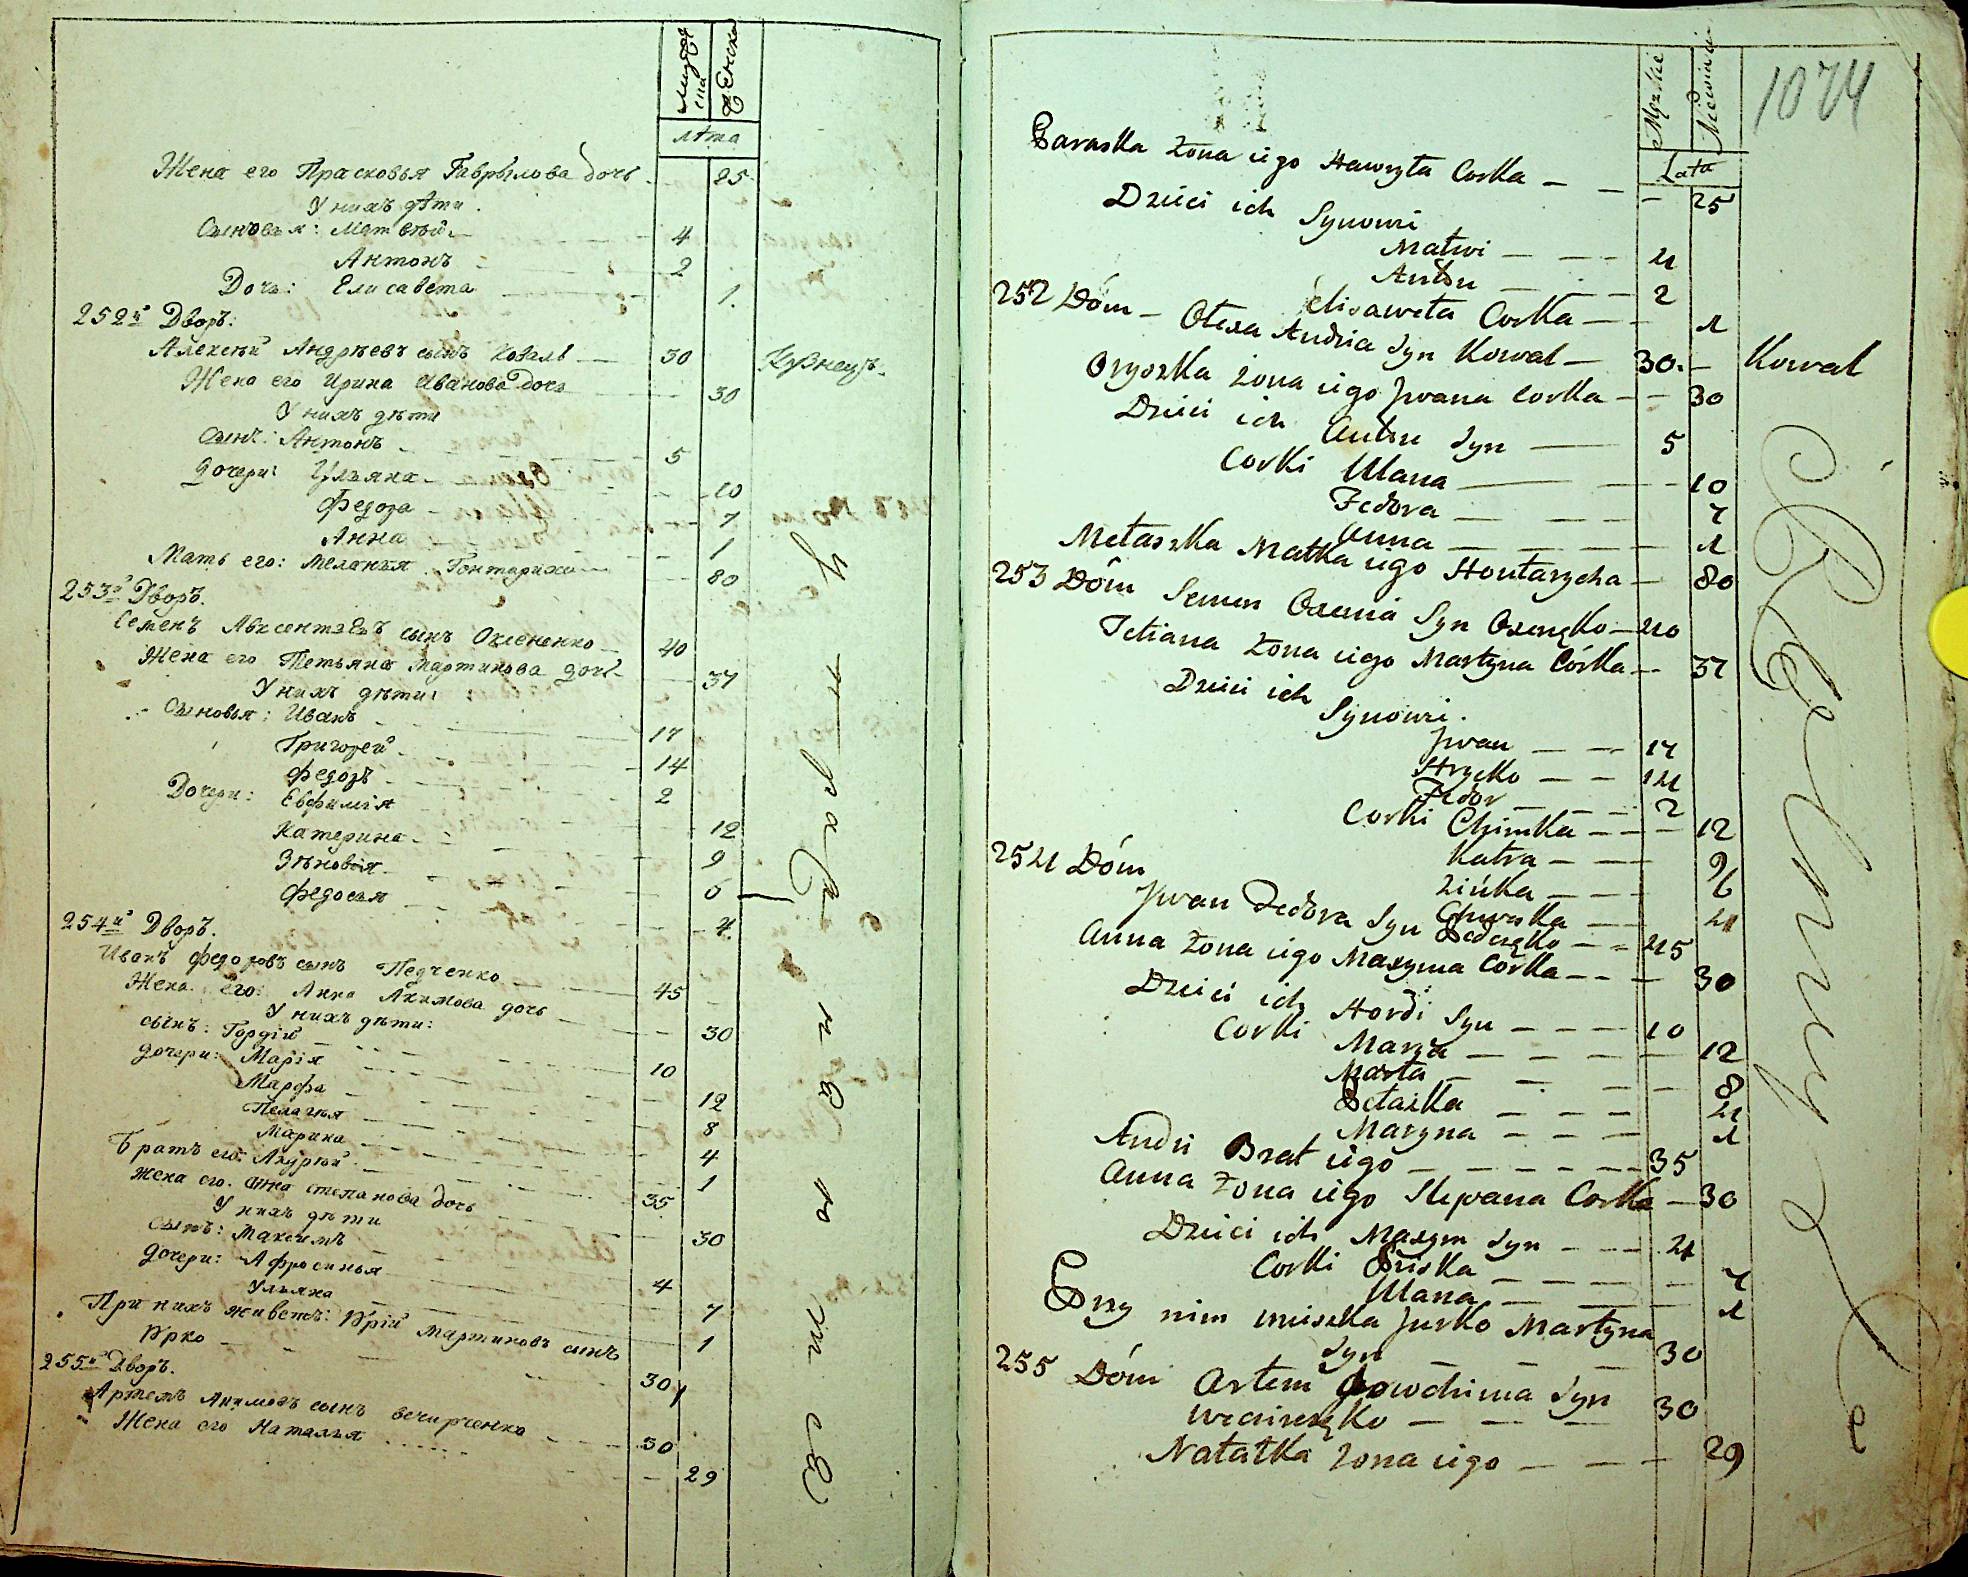 мужес
ска
Женска
лѣта
Жена его Прасковья Гаврылова дочь 25
У нихъ дѣти.
Сыновья: Матвѣй 4
Антонъ 2
Дочь: Елисавета 1.
252й Дворъ:
Алексѣй Андрѣевъ сынъ Коваль 30 Кузнецъ.
Жена его Ирина Иванова дочь 30
У нихъ дѣти
Сынъ: Антонъ 5
Дочери: Ульяна 10
Федора 7
Анна 1
Мать его: Меланья Гонтариха 80
253й Дворъ.
Семенъ Авксентіевъ сынъ Оксененко 40
Жена его Тетьяна Мартинова дочь 37
У нихъ дѣти:
Сыновья: Иванъ 17
Григорей 14
Федоръ 2
Дочери: Евфимія 12
Катерина 9
Зѣновія 6
Федосья 4
254й Дворъ.
Иванъ Федоровъ сынъ Педченко 45
Жена его: Анна Акимова дочь 30
У нихъ дѣти:
Сынъ: Гордій 10
Дочери: Марія 12
Марфа 8
Пелагѣя 4
Марина 1
Братъ его: Андрѣй 35
Жена его. Анна Степанова дочь 30
У нихъ дѣти
Сынъ: Максимъ 4
Дочери: Афросинья 7
Ульяна 1
При нихъ живетъ: Юрій Мартиновъ сынъ
Юрко 30
255й Дворъ.
Артемъ Акимовъ сынъ Вечирченко 30
Жена его Наталья 29
1074
Męzkie
Niewieście
Lata
Paraska żona iego Hawryła Corka — 25
Dzieci ich Synowie
Matwi — 4
Anton — 2
Elisaweta Corka — 1
252 Dóm — Olexa Andria Syn Kowal — 30. — Kowal
Oryszka żona iego Jwana Corka — 30
Dzieci ich Anton Syn — 5
Corki Ulana — 10
Fedora — 7
Anna — 1
Mełaszka Matka iego Hontarycha — 80
253 Dóm Semen Oxenia Syn Oxenęko — 40
Tetiana żona iego Martyna Córka — 37
Dzieci ich
Synowie.
Jwan — 17
Hrycko — 14
Fedor — 2
Corki Chimka — 12
Katra — 9
Zińka — 6
Chweska — 4
254 Dóm
Jwan Fedora Syn Pedczęko — 45
Anna żona iego Maxyma Corka — 30
Dzieci ich Hordi Syn — 10
Corki Marya — 12
Marta — 8
Pełażka — 4
Maryna — 1
Andri Brat iego — 35
Anna żona iego Stepana Corka — 30
Dzieci ich Maxym Syn — 4
Corki Priska — 7
Ulana — 1
Przy nim mieszka Jurko Martyna
Syn — 30
255 Dóm Artem Jowchima Syn
Weczirczęko — 30
Natałka żona iego — 29